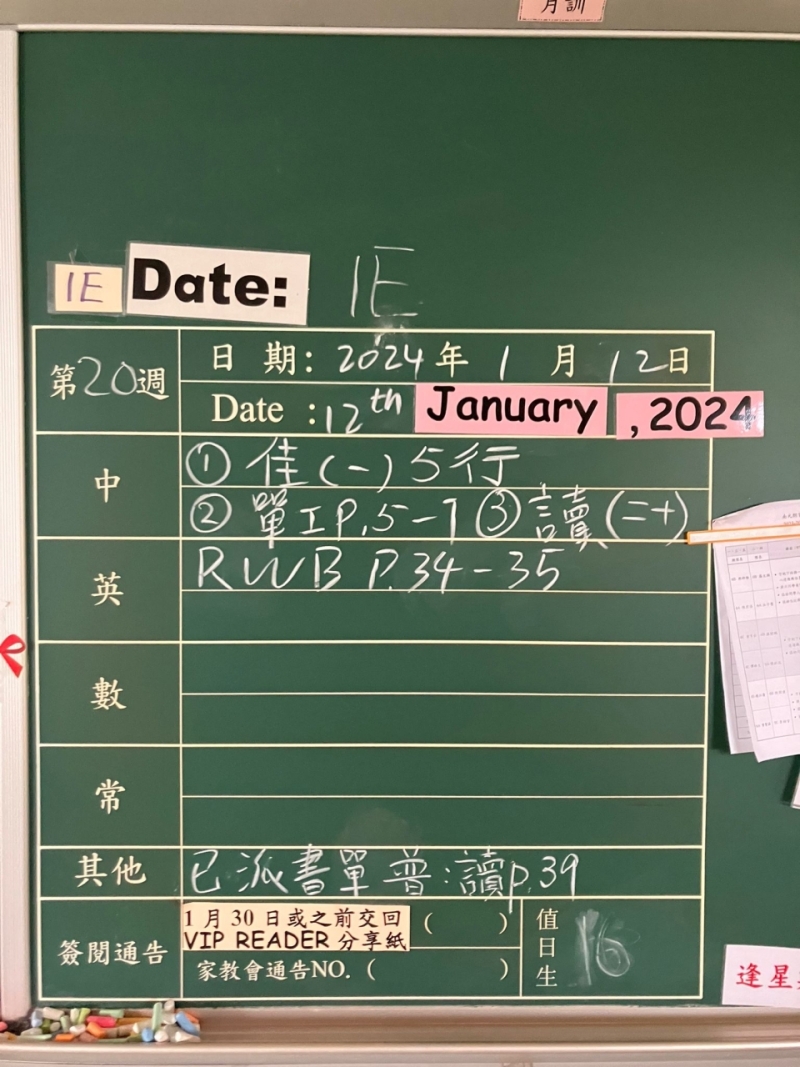 月訓
1E Date: 1E
第20週
日 期: 2024年 1 月 12日
Date :12th January , 2024
中
① 佳(一)5行
② 單工P.5-7 ③ 讀(二十)
英
RWB P.34-35
數
常
其他
已派書單 普:讀p.39
簽閱通告
1 月 30 日或之前交回 ( )
VIP READER 分享紙
家教會通告NO. ( )
值日生
16
逢星